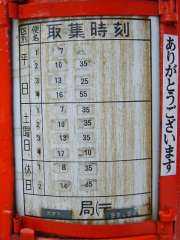 取集時刻
便名
平日
1 7
2 10 35
3 13 25
4 16 55
土曜日
1 7 35
2 10 35
3 13 35
4 17 10
休日
1 8 35
2 14 45
局(〒
ありがとうございます